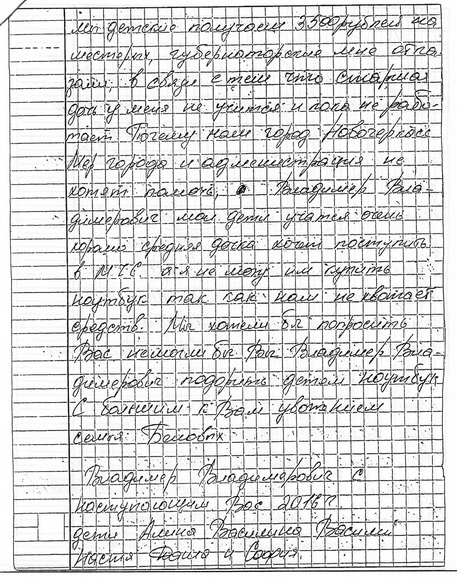 мы детские получаем 3500рублей на
шестерых, губернаторские мне отка
зали, в связи с тем что старшая
дочь у меня не учится и пока не рабо-
тает. Почему наш город Новочеркасс
Мер города и администрация не
хотят помочь, Владимер Вла-
димерович мои дети учатся очень
хорошо средняя дочка хочет поступить
в М.Ч.С. а я не могу им купить
ноутбук так как нам не хватает
средств. Мы хотели бы попросить
Вас, немогли бы Вы Владимер Вла-
димерович подарить детям ноутбук
С большим к Вам уважением
семья Беловых.
Владимер Владимерович с
наступающим Вас 2016 г
дети Алина Василина Василий
Настя и София.